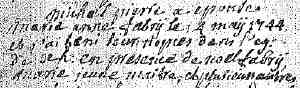 michell pierre a epousé
marie anne fabry le 2 may 1744
et j'ai beni leur noces dans l'eg
de en presence de noel fabry
marie jeune et plusieurs autres